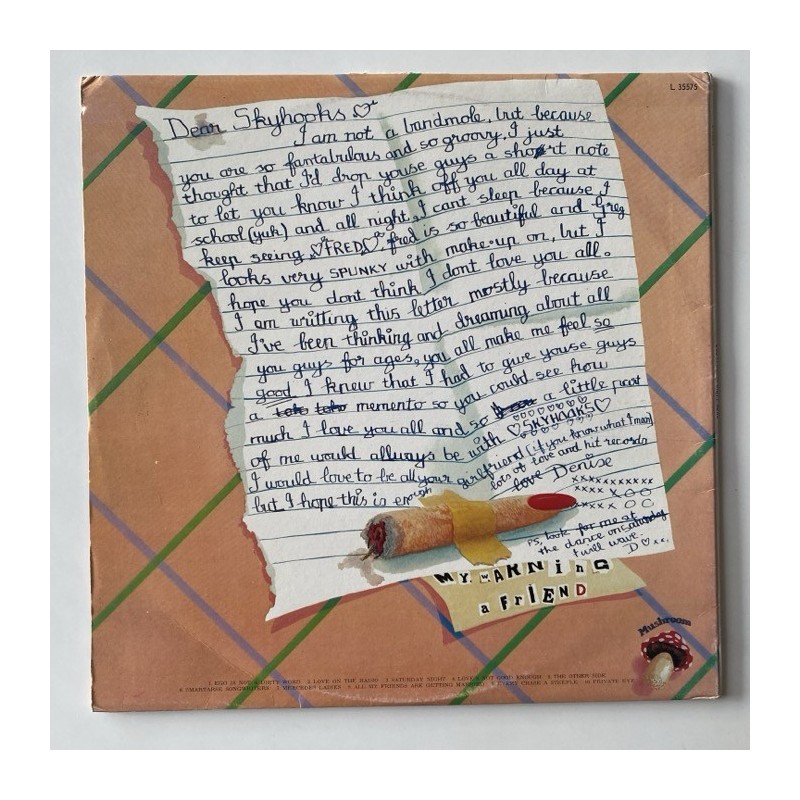 L 35575
Dear Skyhooks
I am not a bandmole, but because
you are so fantabulous and so groovy, I just
thought that I'd drop youse guys a short note
to let you know I think off you all day at
school (yuk) and all night, I cant sleep because I
keep seeing FREDS fred is so beautiful and Greg
looks very SPUNKY with make-up on, but I
hope you dont think I dont love you all.
I am writting this letter mostly because
I've been thinking and dreaming about all
you guys for ages, you all make me feel so
good I knew that I had to give youse guys
a memento so you could see how
much I love you all and so a little part
of me would allways be with SKYHOOKS
I would love to be all your girlfriend (if you know what I mean)
but I hope this is enough lots of love and hit records
love Denise
xxxxxxxxxx
xxxx xOO
xxxx OO
PS, look for me at
the dance on Saturday
I will wave.
D xx.
MY WARNING
a FRIEND
Mushroom
1 EGO IS NOT A DIRTY WORD 2 LOVE ON THE RADIO 3 SATURDAY NIGHT 4 LOVE'S NOT GOOD ENOUGH 5 THE OTHER SIDE
6 SMARTARSE SONGWRITERS 7 MERCEDES LADIES 8 ALL MY FRIENDS ARE GETTING MARRIED 9 EVERY CHASE A STEEPLE 10 PRIVATE EYE